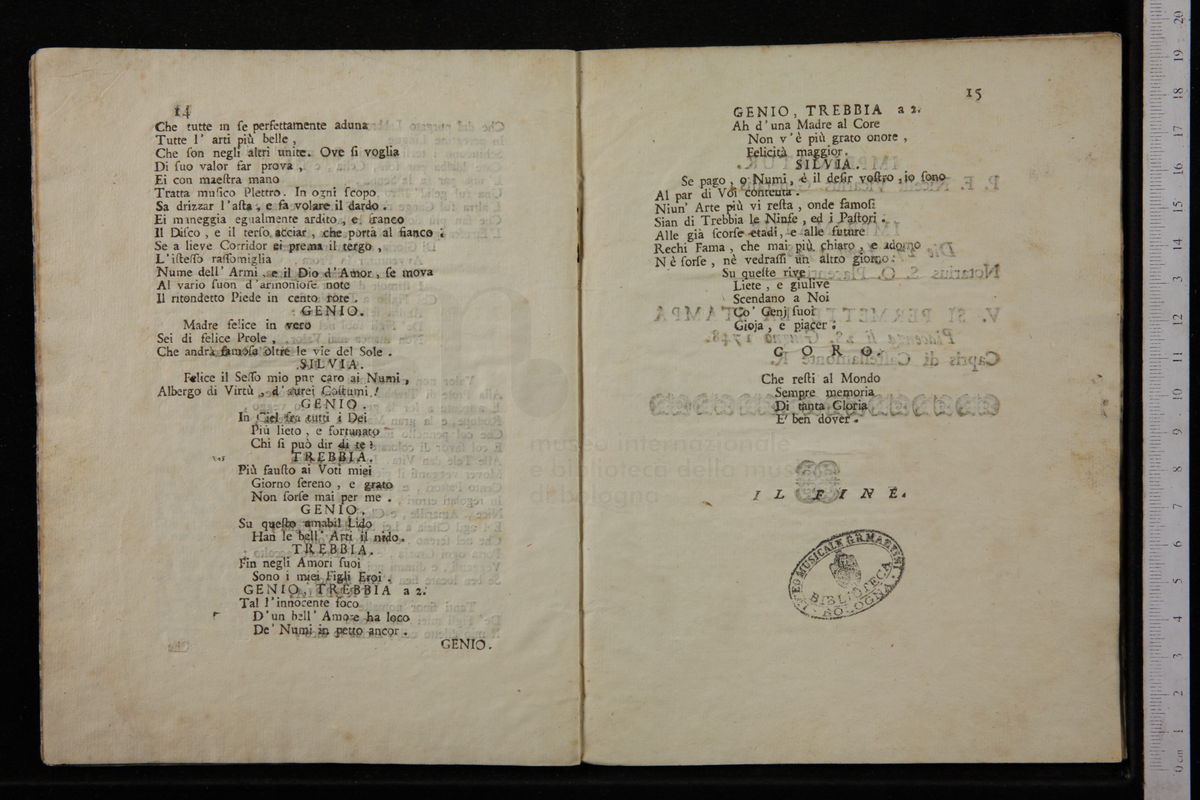 14
Che tutte in ſe perfettamente aduna
Tutte l' arti più belle ,
Che ſon negli altri unite. Ove ſi voglia
Di ſuo valor far prova ,
Ei con maeſtra mano
Tratta muſico Plettro. In ogni ſcopo
Sa drizzar l'aſta , e fa volare il dardo .
Ei maneggia egualmente ardito , e franco
Il Diſco , e il terſo acciar , che porta al fianco :
Se a lieve Corridor ei prema il tergo ,
L'iſteſſo raſſomiglia
Nume dell' Armi , e il Dio d'Amor, ſe mova
Al vario ſuon d'armonioſe note
Il ritondetto Piede in cento rote .
GENIO.
Madre felice in vero
Sei di felice Prole ,
Che andrà famoſa oltre le vie del Sole .
SILVIA.
Felice il Seſſo mio pur caro ai Numi ,
Albergo di Virtù , d'aurei Coſtumi !
GENIO.
In Ciel fra tutti i Dei
Più lieto , e fortunato
Chi ſi può dir di te ?
TREBBIA.
Più fauſto ai Voti miei
Giorno ſereno , e grato
Non ſorſe mai per me .
GENIO.
Su queſto amabil Lido
Han le bell' Arti il nido .
TREBBIA.
Fin negli Amori ſuoi
Sono i miei Figli Eroi .
GENIO, TREBBIA a 2.
Tal l'innocente foco
D'un bell' Amore ha loco
De' Numi in petto ancor .
GENIO.
15
GENIO, TREBBIA a 2.
Ah d'una Madre al Core
Non v'è più grato onore ,
Felicità maggior.
SILVIA.
Se pago , o Numi , è il deſir voſtro , io ſono
Al par di Voi contenta .
Niun' Arte più vi reſta , onde famoſi
Sian di Trebbia le Ninfe , ed i Paſtori .
Alle già ſcorſe etadi , e alle future
Rechi Fama , che mai più chiaro , e adorno
Nè ſorſe , nè vedraſſi un altro giorno .
Su queſte rive
Liete , e giulive
Scendano a Noi
Co' Genj ſuoi
Gioja , e piacer .
CORO.
Che reſti al Mondo
Sempre memoria
Di tanta Gloria
E' ben dover .
IL FINE.
LICEO MUSICALE G.B. MARTINI
BIBLIOTECA
BOLOGNA
museo internazionale
e biblioteca della musica
di bologna
0 cm 1 2 3 4 5 6 7 8 9 10 11 12 13 14 15 16 17 18 19 20